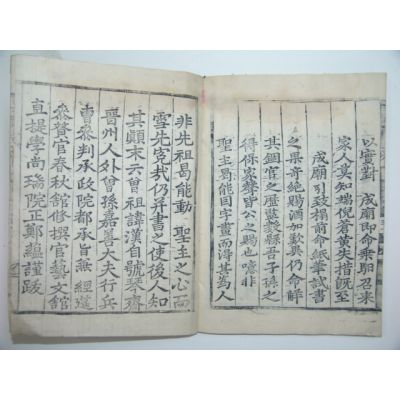 以實對 成廟即命乘馹召來
家人莫知端倪蒼黃失措旣至
成廟引致榻前命紙筆試書
之果奇絶賜酒如數異仍命解
其錮官之歷監數縣吾子孫之
得保家聲皆公之賜也噫非
聖主曷能因字畫而得其爲人
非先祖曷能動 聖主之心而
雪先寃哉仍幷書之使後人知
其顚末云曾祖諱漢自號琴齋
晋州人外曾孫嘉善大夫行兵
曹參判承政院都承旨兼 經筵
參贊官春秋館修撰官藝文館
直提學尚瑞院正鄭蘊謹跋